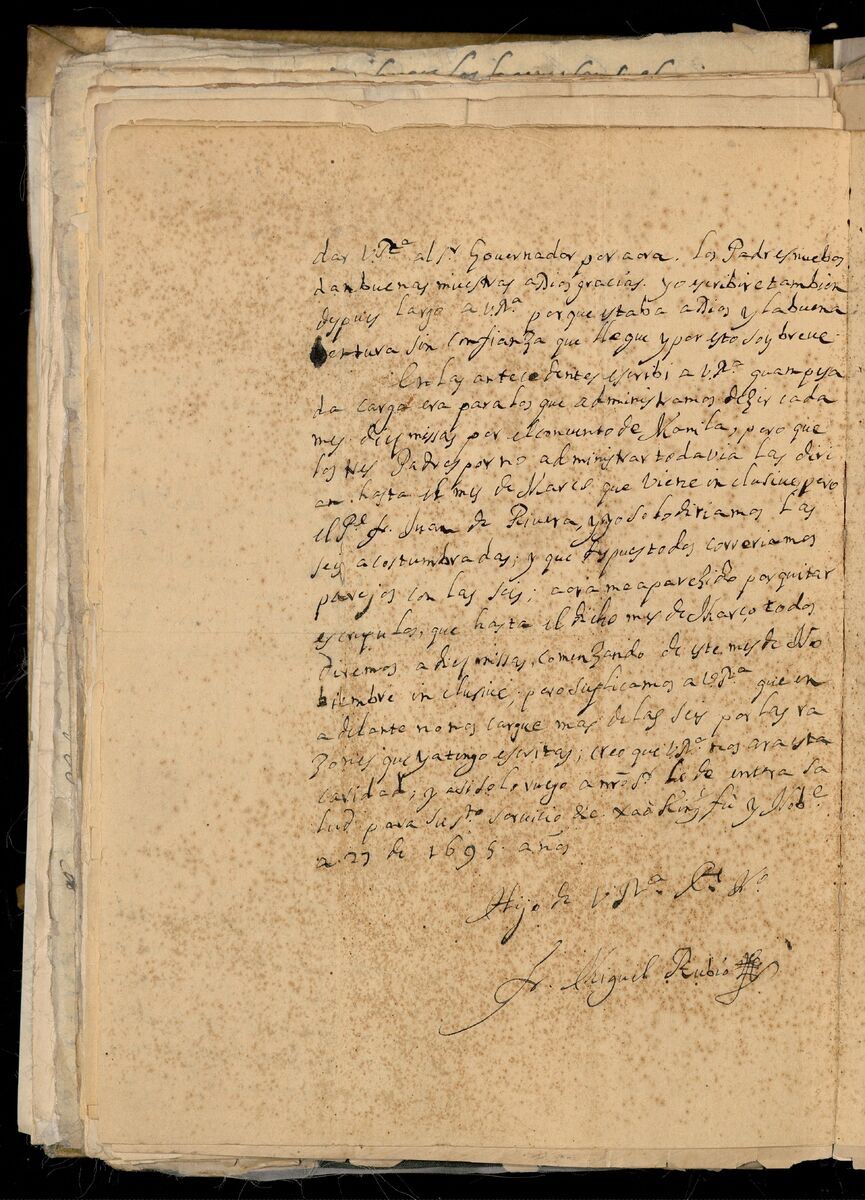 dar V.Rª. al Sr. Governador por aora. Los Padres nuebos
dan buenas muestras a Dios gracias. yo escribire tambien
despues largo a V.Rª. porque estaba a Dios y la buena
bentura sin confianza que llegue y por esto soy breue.
En las antecedentes escribi a V.Rª. quam pesa
da carga era para los que administramos dezir cada
mes diez missas por el convento de Manila, pero que
los tres Padres por no administrar todavia las diri
an hasta el mes de Março que viene inclusiue, pero
el Pe. fr. Juan de Rivera, y yo solo diriamos las
seis acostumbradas; y que despues todos correriamos
parejos con las seis; aora me a parezido por quitar
escrupulos, que hasta el dicho mes de Março todos
diremos a dies missas, comenzando de este mes de No
biembre inclusiue, pero suplicamos a V.Rª. que en
adelante no nos cargue mas de las seis por las ra
zones que ya tengo escritas; creo que V.Rª. nos ara esta
caridad; y asi solo ruego a nro. Sr. le de entera sa
lud para su sto. servicio de Xaò Kíng fù y Nobe.
a 27 de 1695 años
Hijo de V.Rª.
fr. Miguel Rubio